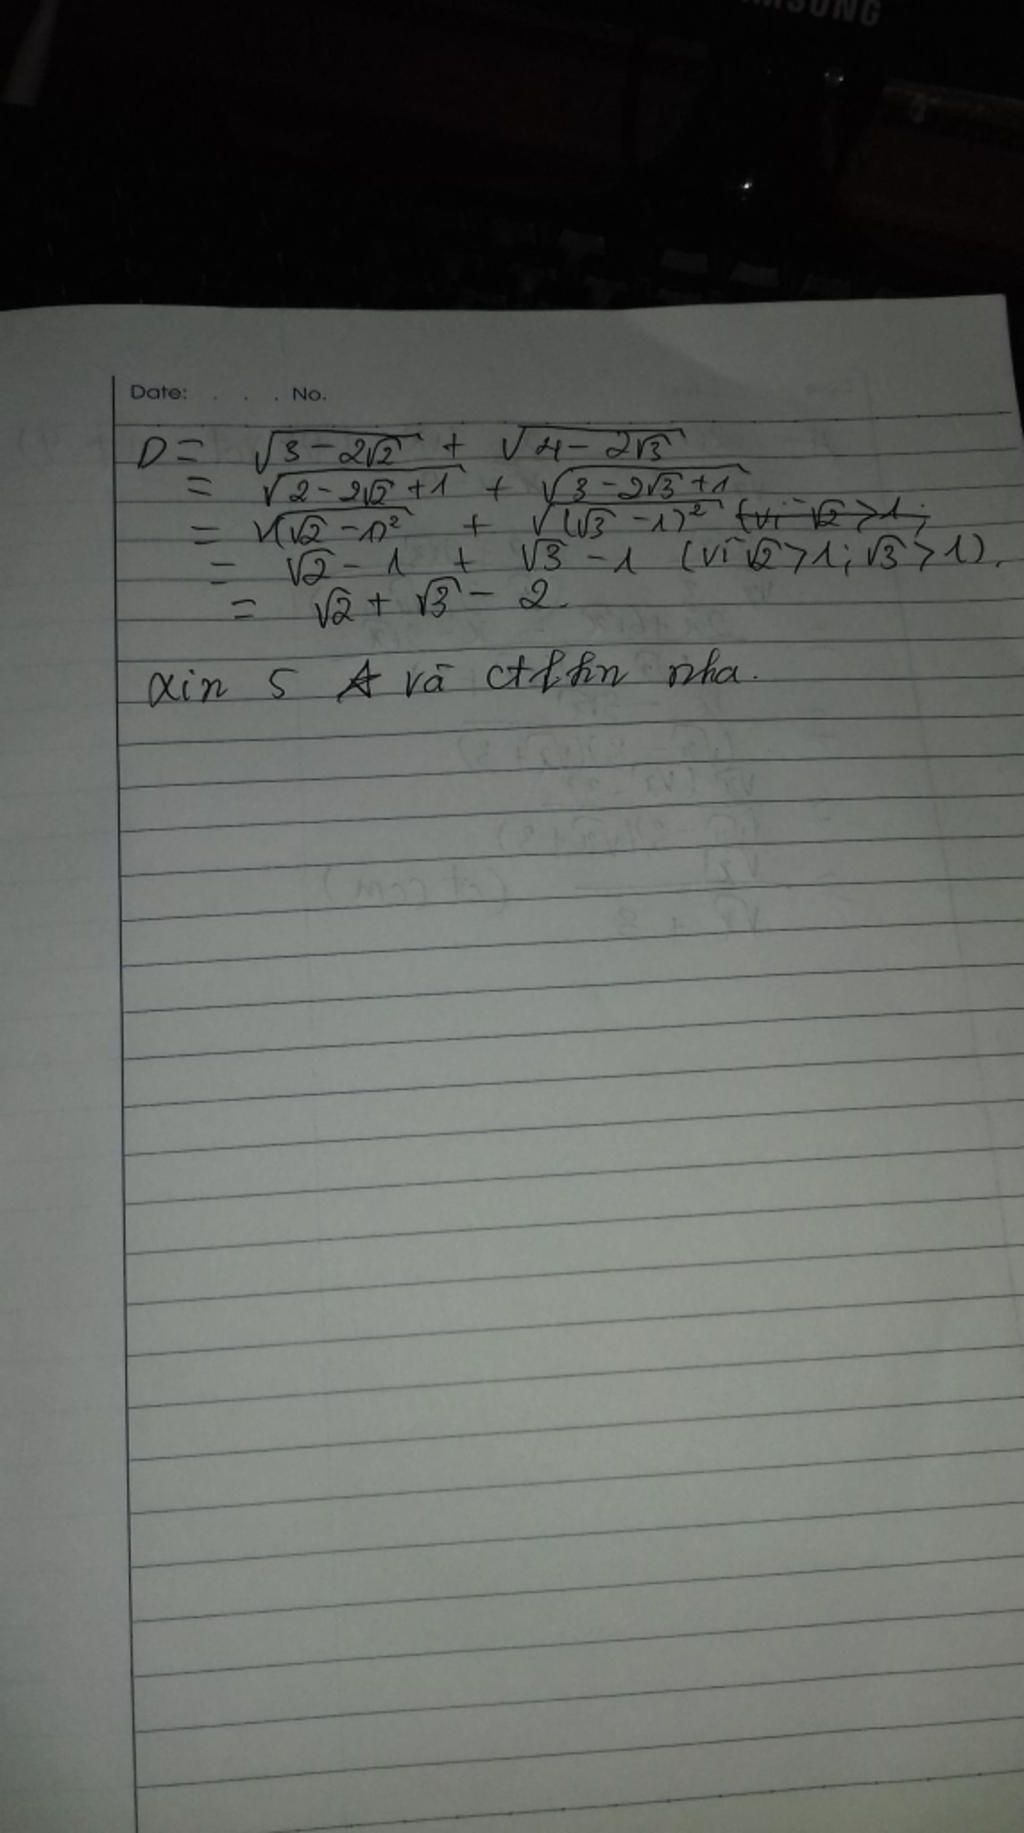 SAMSUNG
Date: . . . No.
D = √(3 - 2√2) + √(4 - 2√3)
= √(2 - 2√2 + 1) + √(3 - 2√3 + 1)
= √((√2 - 1)²) + √((√3 - 1)²) (vì √2 > 1;
= √2 - 1 + √3 - 1 (vì √2 > 1; √3 > 1).
= √2 + √3 - 2.
xin 5 ☆ và ctlhn nha.